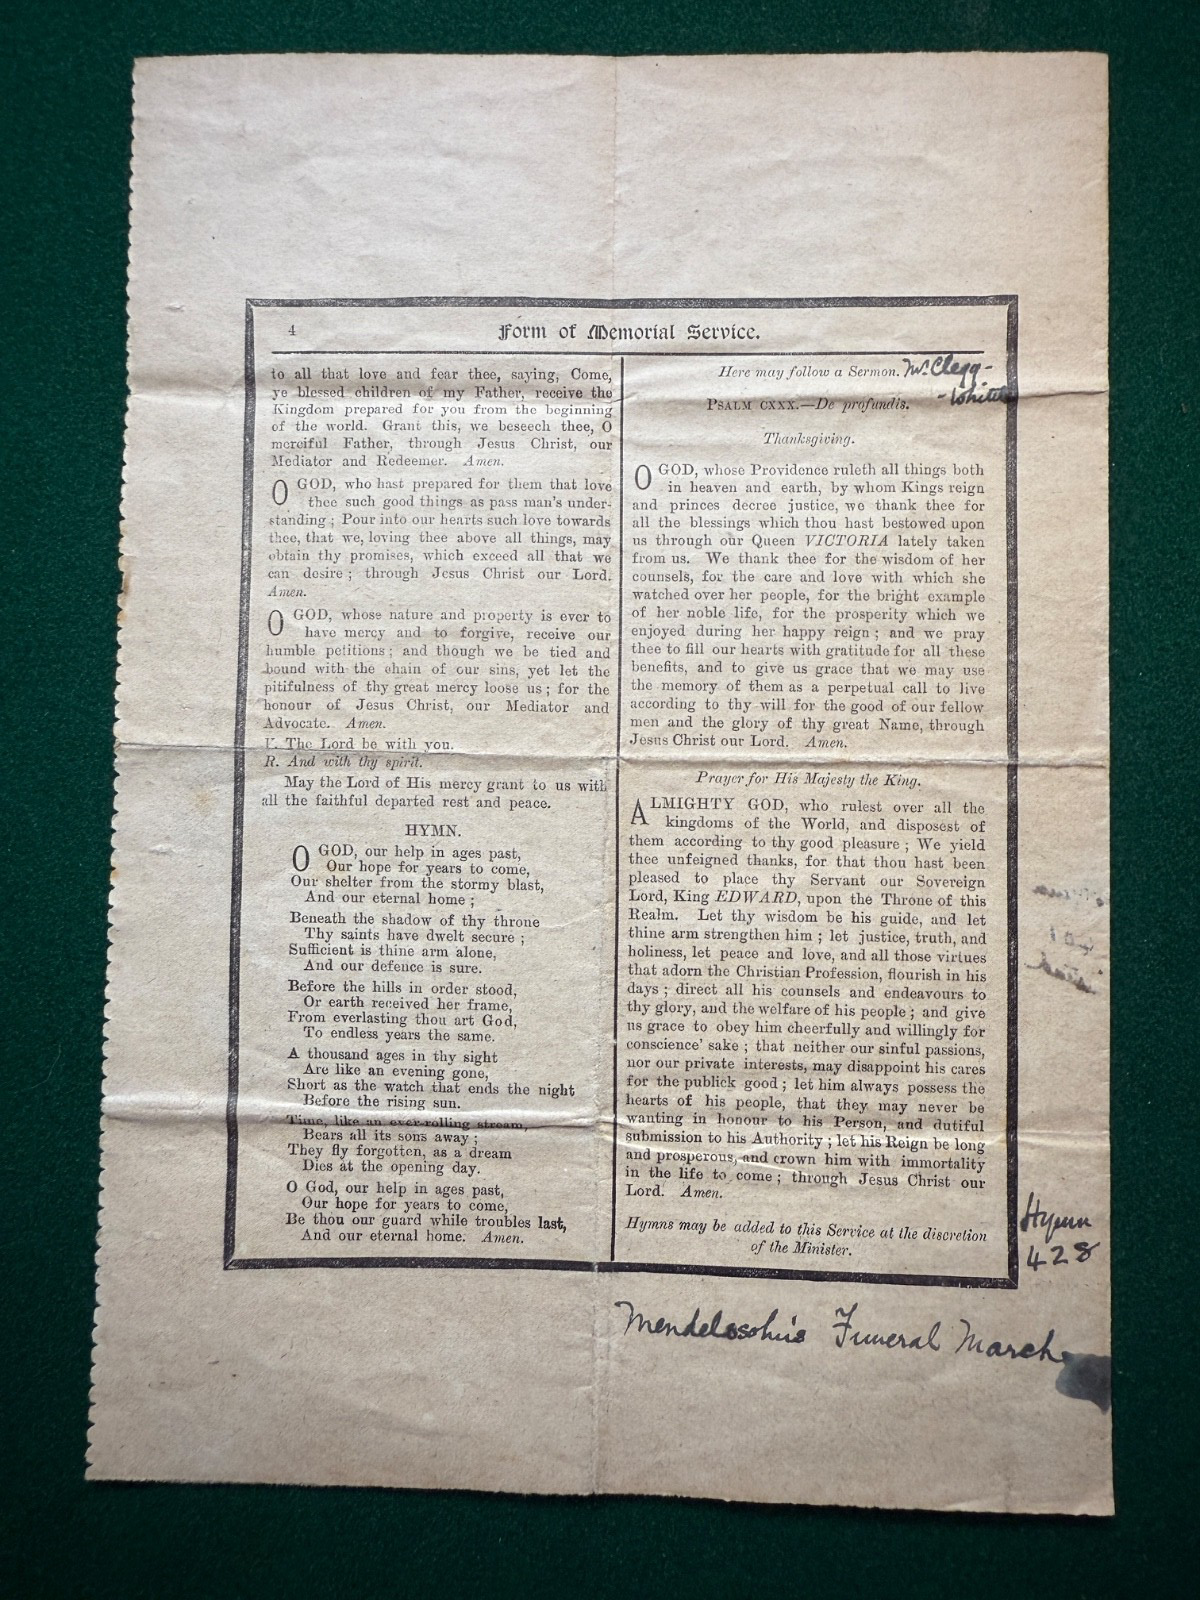 4
Form of Memorial Service.
to all that love and fear thee, saying, Come,
ye blessed children of my Father, receive the
Kingdom prepared for you from the beginning
of the world. Grant this, we beseech thee, O
merciful Father, through Jesus Christ, our
Mediator and Redeemer. Amen.
O GOD, who hast prepared for them that love
thee such good things as pass man's under-
standing ; Pour into our hearts such love towards
thee, that we, loving thee above all things, may
obtain thy promises, which exceed all that we
can desire ; through Jesus Christ our Lord.
Amen.
O GOD, whose nature and property is ever to
have mercy and to forgive, receive our
humble petitions ; and though we be tied and
bound with the chain of our sins, yet let the
pitifulness of thy great mercy loose us ; for the
honour of Jesus Christ, our Mediator and
Advocate. Amen.
V. The Lord be with you.
R. And with thy spirit.
May the Lord of His mercy grant to us with
all the faithful departed rest and peace.
HYMN.
O GOD, our help in ages past,
Our hope for years to come,
Our shelter from the stormy blast,
And our eternal home ;
Beneath the shadow of thy throne
Thy saints have dwelt secure ;
Sufficient is thine arm alone,
And our defence is sure.
Before the hills in order stood,
Or earth received her frame,
From everlasting thou art God,
To endless years the same.
A thousand ages in thy sight
Are like an evening gone,
Short as the watch that ends the night
Before the rising sun.
Time, like an ever-rolling stream,
Bears all its sons away ;
They fly forgotten, as a dream
Dies at the opening day.
O God, our help in ages past,
Our hope for years to come,
Be thou our guard while troubles last,
And our eternal home. Amen.
Here may follow a Sermon. Mr. Clegg-
-White
PSALM CXXX.—De profundis.
Thanksgiving.
O GOD, whose Providence ruleth all things both
in heaven and earth, by whom Kings reign
and princes decree justice, we thank thee for
all the blessings which thou hast bestowed upon
us through our Queen VICTORIA lately taken
from us. We thank thee for the wisdom of her
counsels, for the care and love with which she
watched over her people, for the bright example
of her noble life, for the prosperity which we
enjoyed during her happy reign ; and we pray
thee to fill our hearts with gratitude for all these
benefits, and to give us grace that we may use
the memory of them as a perpetual call to live
according to thy will for the good of our fellow
men and the glory of thy great Name, through
Jesus Christ our Lord. Amen.
Prayer for His Majesty the King.
ALMIGHTY GOD, who rulest over all the
kingdoms of the World, and disposest of
them according to thy good pleasure ; We yield
thee unfeigned thanks, for that thou hast been
pleased to place thy Servant our Sovereign
Lord, King EDWARD, upon the Throne of this
Realm. Let thy wisdom be his guide, and let
thine arm strengthen him ; let justice, truth, and
holiness, let peace and love, and all those virtues
that adorn the Christian Profession, flourish in his
days ; direct all his counsels and endeavours to
thy glory, and the welfare of his people ; and give
us grace to obey him cheerfully and willingly for
conscience' sake ; that neither our sinful passions,
nor our private interests, may disappoint his cares
for the publick good ; let him always possess the
hearts of his people, that they may never be
wanting in honour to his Person, and dutiful
submission to his Authority ; let his Reign be long
and prosperous, and crown him with immortality
in the life to come ; through Jesus Christ our
Lord. Amen.
Hymns may be added to this Service at the discretion
of the Minister.
Hymn
428
Mendelssohn's Funeral March